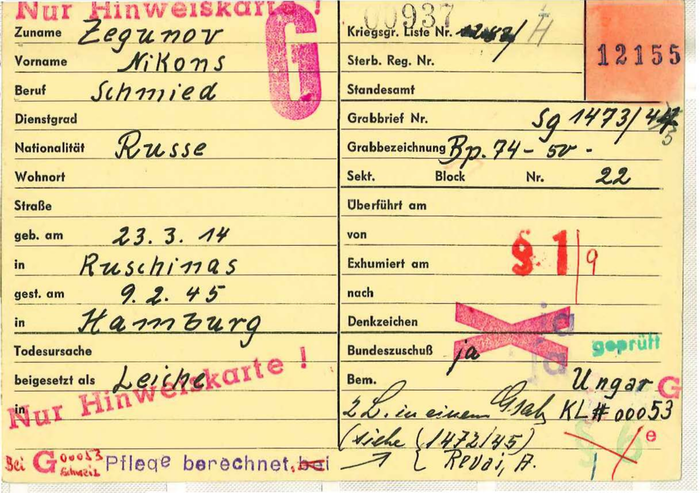 Nur Hinweiskarte !
G
00937
12155
Zuname Zegunov
Vorname Nikons
Beruf Schmied
Dienstgrad
Nationalität Russe
Wohnort
Straße
geb. am 23. 3. 14
in Ruschinas
gest. am 9. 2. 45
in Hamburg
Todesursache
beigesetzt als Leiche
in
Nur Hinweiskarte !
Bei G 00053 Schweiz Pflege berechnet, bei
Kriegsgr. Liste Nr. H
Sterb. Reg. Nr.
Standesamt
Grabbrief Nr. Sg 1473/44 5
Grabbezeichnung Bp. 74 - 50 -
Sekt. Block Nr. 22
Überführt am
von
Exhumiert am § 1 / 9
nach
Denkzeichen
Bundeszuschuß ja geprüft
Bem. Ungar G
2 L. in einem KL # 00053
(siehe (1472/45) e
Revai, A.